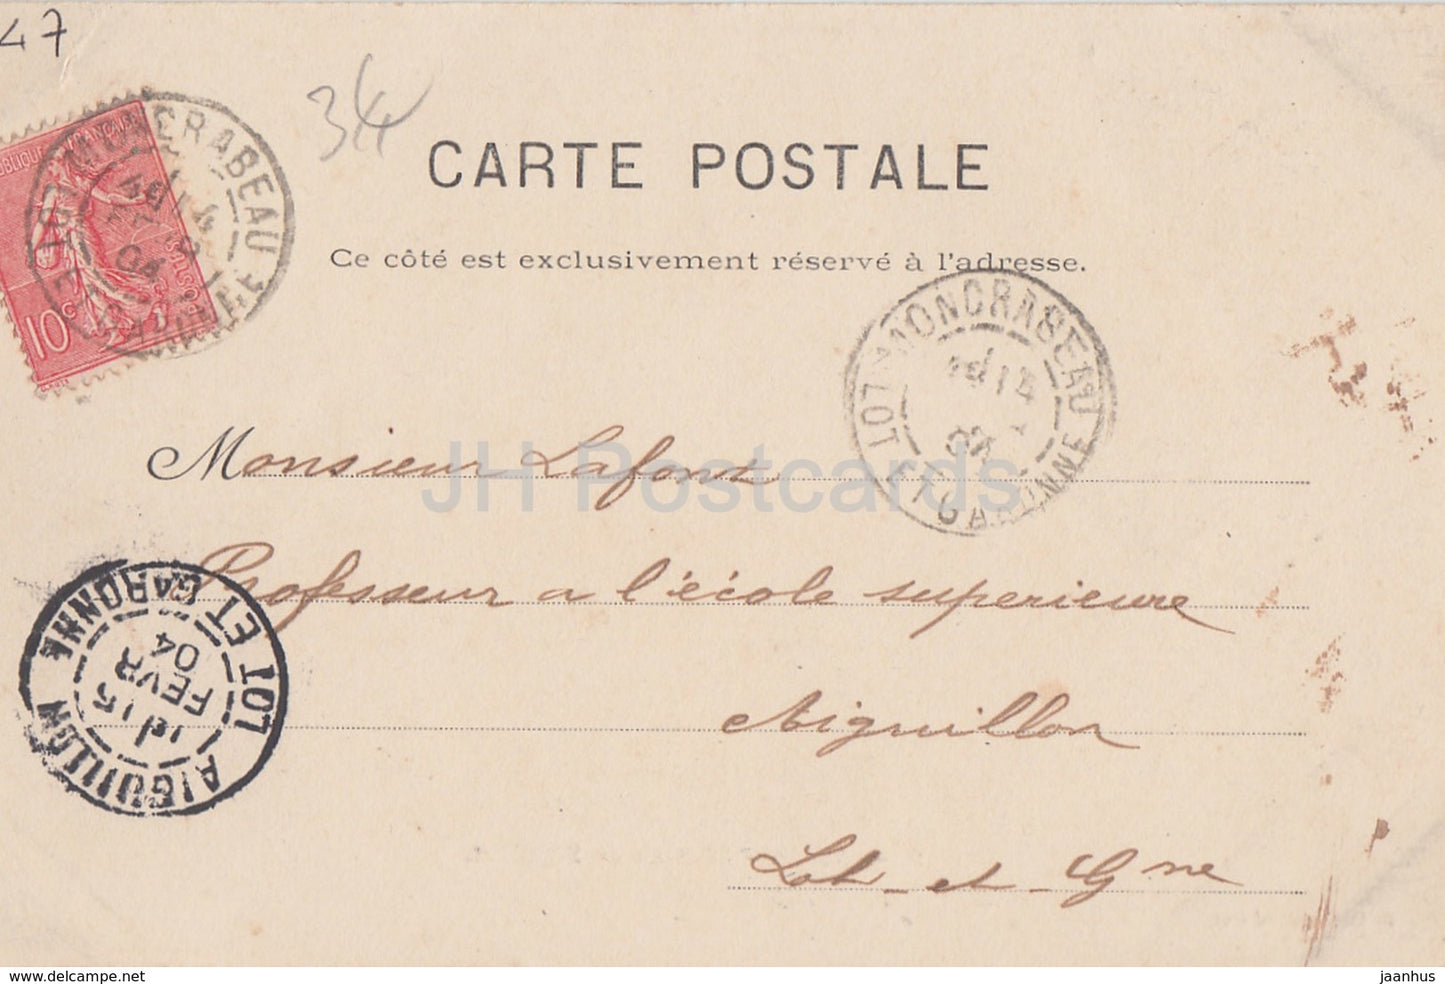 47
34
CARTE POSTALE
Ce côté est exclusivement réservé à l'adresse.
FRANÇAISE
10c
MONCRABEAU
LOT ET GARONNE
04
MONCRABEAU
LOT ET GARONNE
Monsieur Lafont
Professeur a l'école superieure
Aiguillon
Lot-et-Gne
AIGUILLON
LOT ET GARONNE
15
FEVR
04
JH Postcards
www.delcampe.net
jaanhus